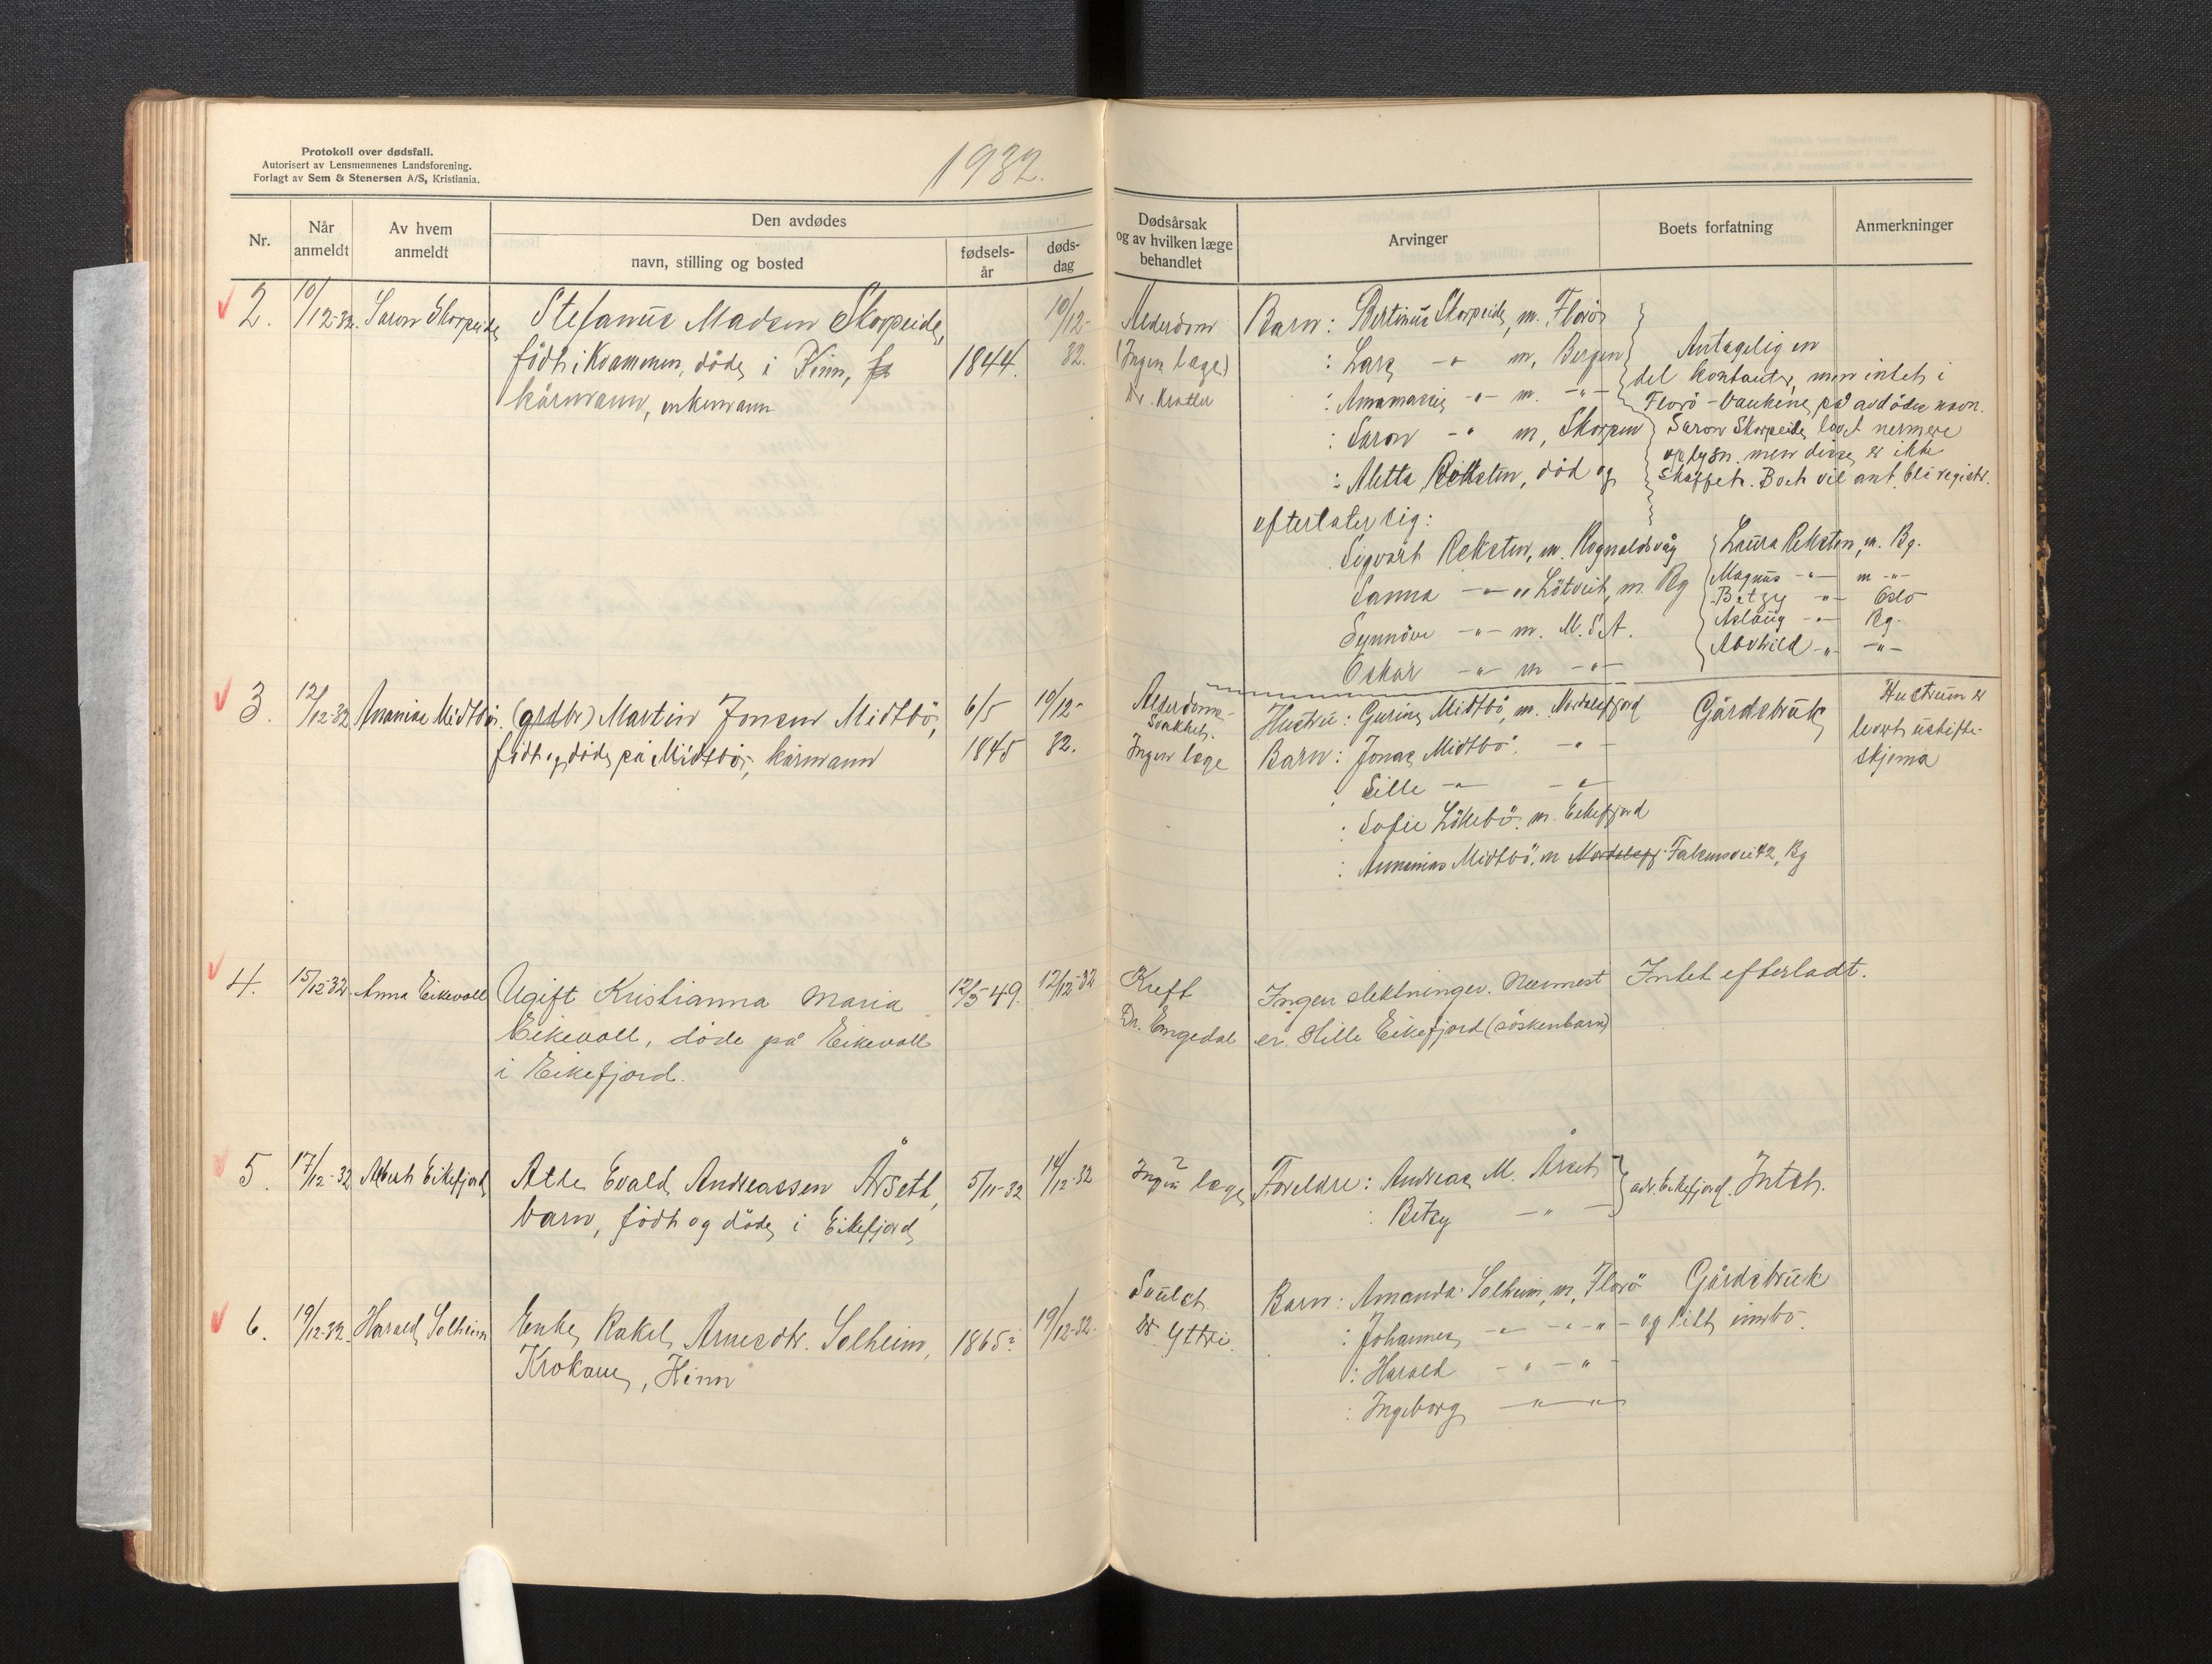 Protokoll over dødsfall.
Autorisert av Lensmennenes Landsforening.
Forlagt av Sem & Stenersen A/S, Kristiania.
1932.
Nr.
Når anmeldt
Av hvem anmeldt
Den avdødes
navn, stilling og bosted
fødsels-år
døds-dag
Dødsårsak og av hvilken læge behandlet
Arvinger
Boets forfatning
Anmerkninger
2. 10/12-32. Saron Skorpeide
Stefanus Madsen Skorpeide,
født i Kvammen, døde i Kinn,
kårmann, enkemann
1844.
10/12-
32.
Alderdom
(Ingen læge)
Barn: Bertinus Skorpeide, m. Florö
: Lars -"- m, Bergen
: Annamarie -"- m. -"-
: Saron -"- m, Skorpen
: Aletta Reksten, död og
efterlater sig:
Sigvart Reksten, m. Rognaldsvåg
Sanna -"- Lötveit, m. Bg
Synnöve -"- m. U.S.A.
Oskar -"- m -"-
Laura Reksten, m. Bg.
Magnus -"- m -"-
Betzy -"- Oslo
Aslaug -"- Bg.
-"- -"-
Antagelig en
del kontanter, men intet i
Florö-bankene på avdödes navn.
Saron Skorpeide lovet nermere
oplysn. men disse er ikke
skaffet. Boet vil ant. bli registr.
3. 12/12-32 Ananias Midtbö.
(grdbr) Martin Jonsen Midtbö,
født og döde på Midtbö, kårmann
6/5
1845
10/12-
32.
Alderdoms-
svakhet.
Ingen læge
Hustru: Gurine Midtbö, m. Nordalsfjord
Barn: Jonas Midtbö. -"-
: Sille -"- -"-
: Sofie Lökkebö. m. Eikefjord
: Annanias Midtbö, m Nordalsfj. Falkensvei 42, Bg
Gårdsbruk
Hustruen er
levert uskifte-
skjema
4. 15/12-32 Anna Eikevoll
Ugift Kristianna Maria
Eikevoll, døde på Eikevoll
i Eikefjord.
12/5-49.
12/12-32
Kreft
Dr. Engedal
Ingen slektninger. Nærmest
er Hille Eikefjord (söskenbarn)
Intet efterladt.
5. 17/12-32 Albert Eikefjord
Atle Evald Andreassen Årseth,
barn, født og döde i Eikefjord
5/11-32
14/12-32
?
Ingen læge
Foreldre: Andreas M. Årset
: Betzy -"-
adr. Eikefjord. Intet.
6. 19/12-32. Harald Solheim
Enke Rakel Arnesdtr. Solheim,
Krokane, Kinn
1865?
19/12-32.
Svulst
Dr Yttri.
Barn: Amanda Solheim, m, Florö
: Johannes -"- -"-
: Harald -"- -"-
: Ingeborg -"- -"-
Gårdsbruk
og litt innbo.